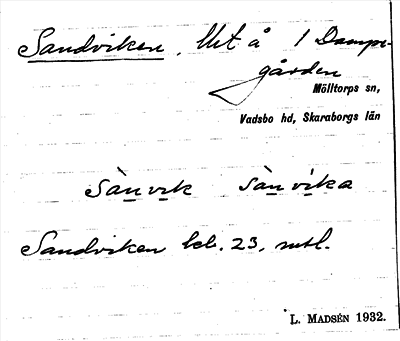 Sandviken, Utå 1 Damps-
gården
Mölltorps sn,
Vadsbo hd, Skaraborgs län
Sàn̲vi̲k Sàn̲vi̲ka
Sandviken leb. 23, mtl.
L. MADSÉN 1932.